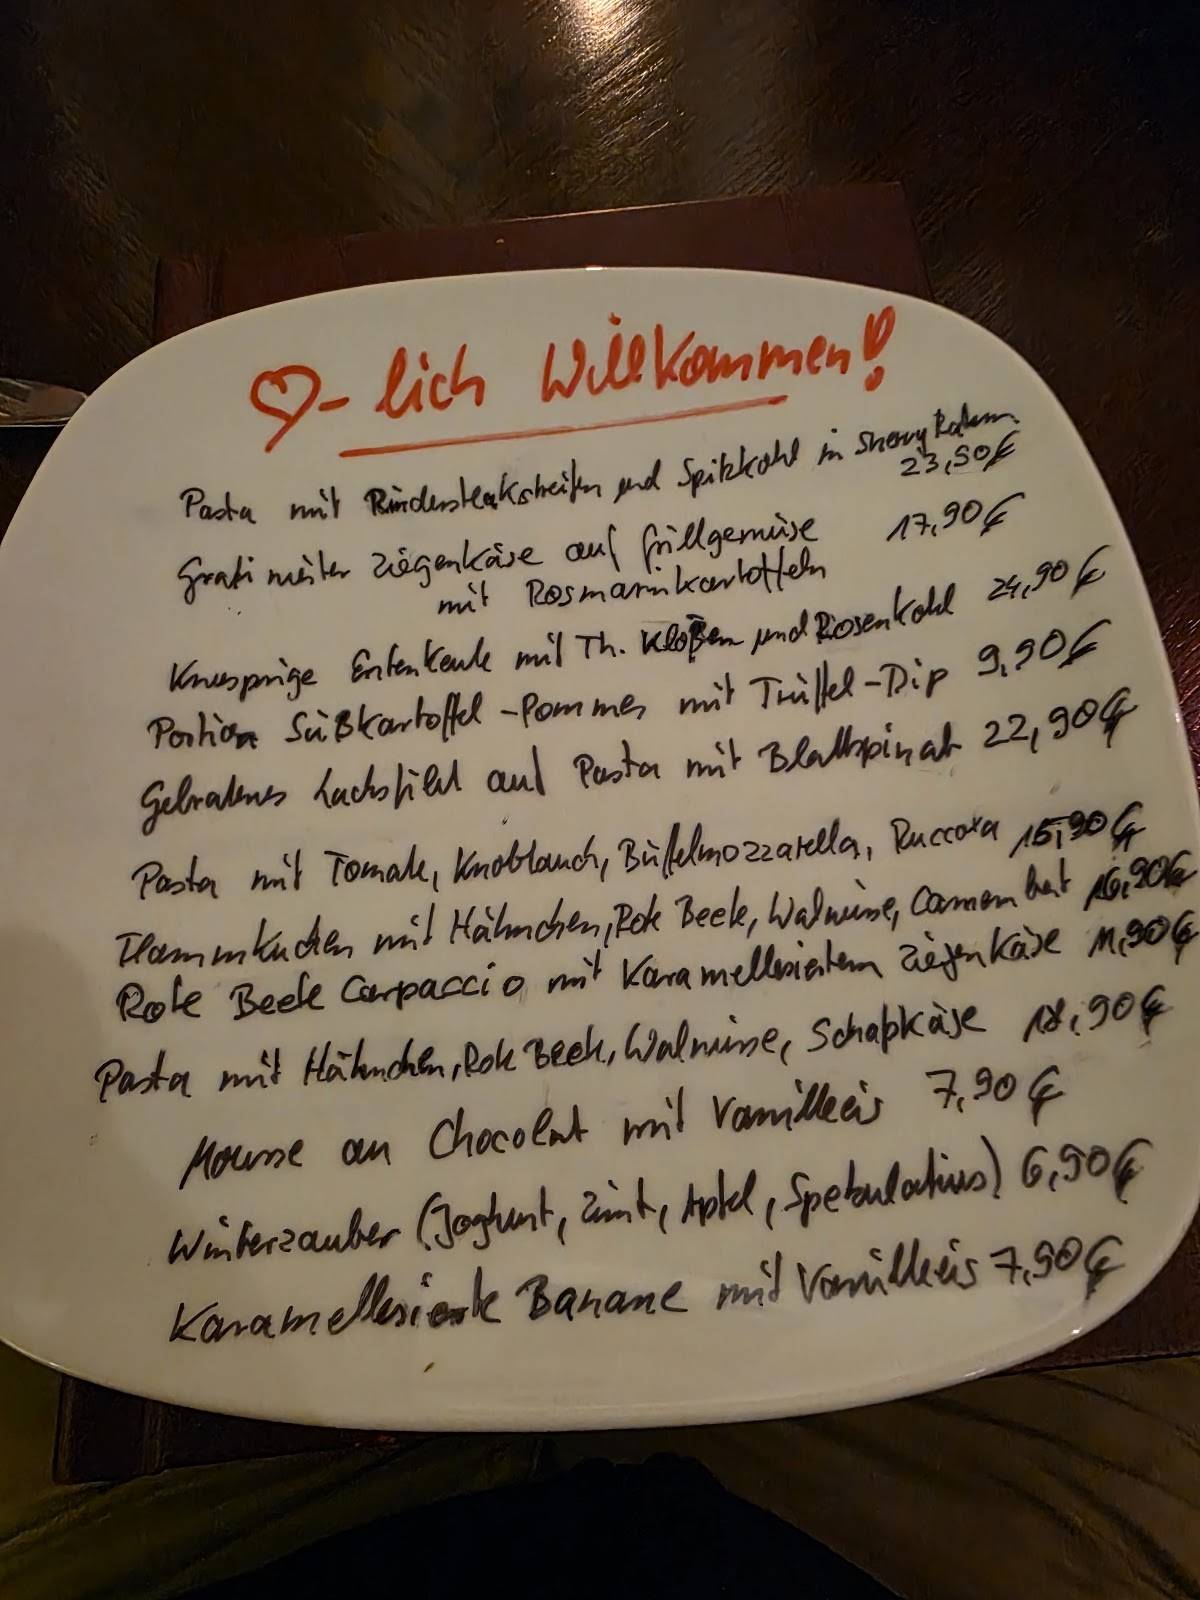 ♡-lich Willkommen!
Pasta mit Rindersteakstreifen und Spitzkohl in Sherry Rahm
23,90€
Gratinierter Ziegenkäse auf Grillgemüse 17,90€
mit Rosmarinkartoffeln
Knusprige Entenkeule mit Th. Klößen und Rosenkohl 24,90€
Portion Süßkartoffel-Pommes mit Trüffel-Dip 9,90€
Gebratenes Lachsfilet auf Pasta mit Blattspinat 22,90€
Pasta mit Tomate, Knoblauch, Büffelmozzarella, Ruccola 15,90€
Flammkuchen mit Hähnchen, Rote Beete, Walnüsse, Camembert 16,90€
Rote Beete Carpaccio mit Karamellesiertem Ziegenkäse 11,90€
Pasta mit Hähnchen, Rote Beete, Walnüsse, Schafskäse 18,90€
Mousse au Chocolat mit Vanilleeis 7,90€
Winterzauber (Joghurt, Zimt, Apfel, Spekulatius) 6,90€
Karamellesierte Banane mit Vanilleeis 7,90€